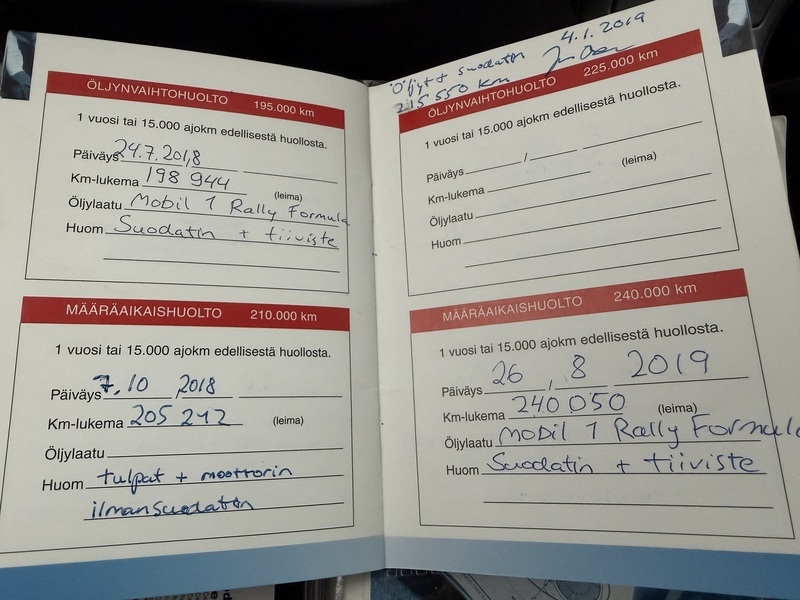 ÖLJYNVAIHTOHUOLTO 195.000 km
1 vuosi tai 15.000 ajokm edellisestä huollosta.
Päiväys 24.7.2018
Km-lukema 198 944 (leima)
Öljylaatu Mobil 1 Rally Formula
Huom Suodatin + tiiviste
MÄÄRÄAIKAISHUOLTO 210.000 km
1 vuosi tai 15.000 ajokm edellisestä huollosta.
Päiväys 7.10 2018
Km-lukema 205 212 (leima)
Öljylaatu
Huom tulpat + moottorin
ilmansuodatin
4.1.2019
Öljyt + suodatin
215 550 km
ÖLJYNVAIHTOHUOLTO 225.000 km
1 vuosi tai 15.000 ajokm edellisestä huollosta.
Päiväys /
Km-lukema (leima)
Öljylaatu
Huom
MÄÄRÄAIKAISHUOLTO 240.000 km
1 vuosi tai 15.000 ajokm edellisestä huollosta.
Päiväys 26 / 8 2019
Km-lukema 240 050 (leima)
Öljylaatu Mobil 1 Rally Formula
Huom Suodatin + tiiviste